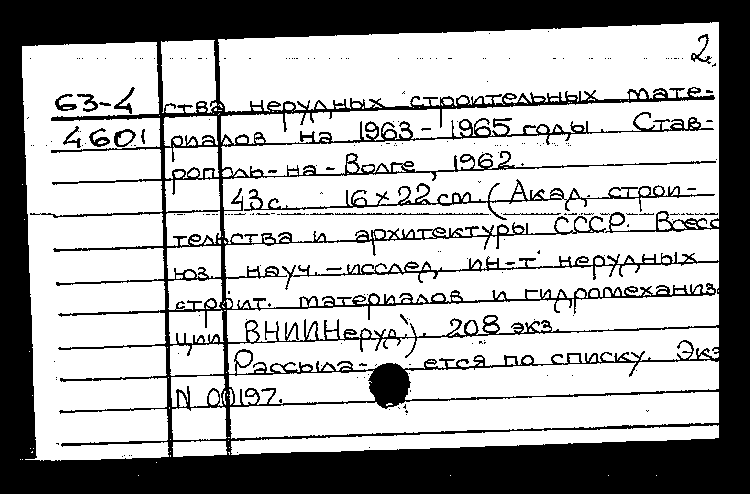 2.
63-4 ства нерудных строительных мате-
4601 риалов на 1963-1965 годы. Став-
рополь-на-Волге, 1962.
43с. 16×22cm (Акад. строи-
тельства и архитектуры СССР. Всесо
юз. науч.-исслед. ин-т нерудных
строит. материалов и гидромеханиз
ции ВНИИНеруд.). 208 экз.
Рассыла- ется по списку. Экз
N 00197.